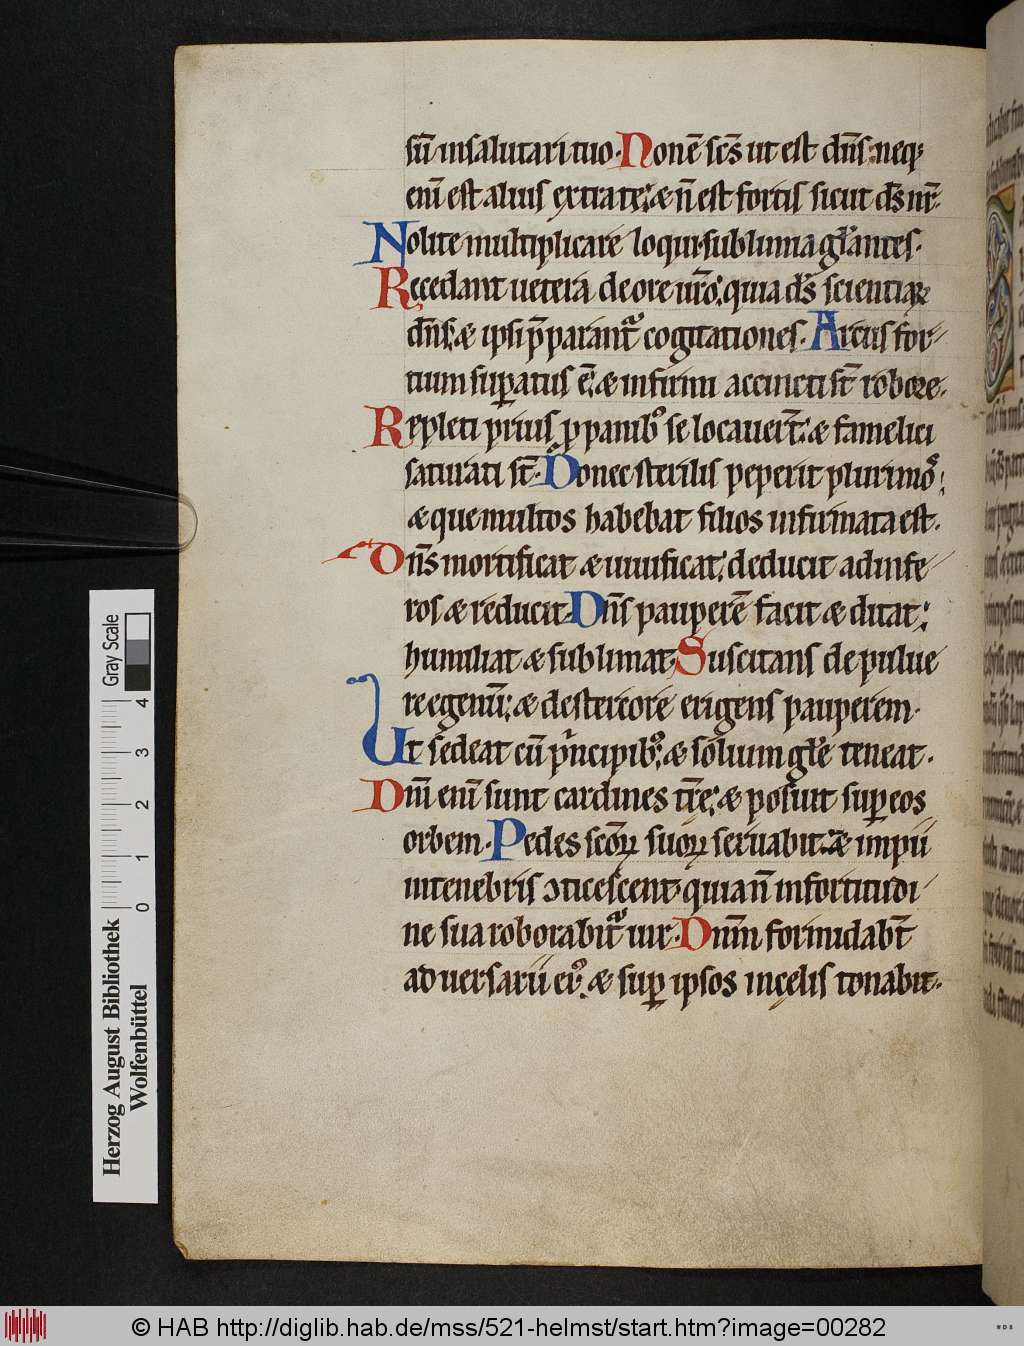 sū insalutari tuo. Non ē scs̄ ut est dn̄s: neq;
enī est alius extra te; & n̄ est fortis sicut ds̄ nr̄.
Nolite multiplicare loqui sublimia gl̄antes.
Recedant uetera de ore ur̄o; quia ds̄ scientiaꝝ
dn̄s; & ipsi p̄parantᷣ cogitationes. Arcus for-
tium supatus ē; & infirmi accincti st̄ robore.
Repleti prius p panibꝰ se locauer̄t; & famelici
saturati st̄. Donec sterilis peperit plurimos;
& que multos habebat filios infirmata est.
Dn̄s mortificat & uiuificat; deducit ad infe-
ros & reducit. Dn̄s pauperē facit & ditat;
humiliat & sublimat. Suscitans de puluе
re egenū; & de stercore erigens pauperem.
Ut sedeat cū pⁱncipibꝰ; & solium gl̄e teneat.
Dn̄i enī sunt cardines tr̄ę; & posuit sup eos
orbem. Pedes scōꝝ suoꝝ seruabit: & impii
in tenebris ↄticescent. quia n̄ in fortitudi-
ne sua roborabitᷣ uir. Dnm̄ formidabt̄
aduersarii eiꝰ; & sup ipsos in cęlis tonabit.
Herzog August Bibliothek
Wolfenbüttel
0 1 2 3 4
Gray Scale
© HAB http://diglib.hab.de/mss/521-helmst/start.htm?image=00282